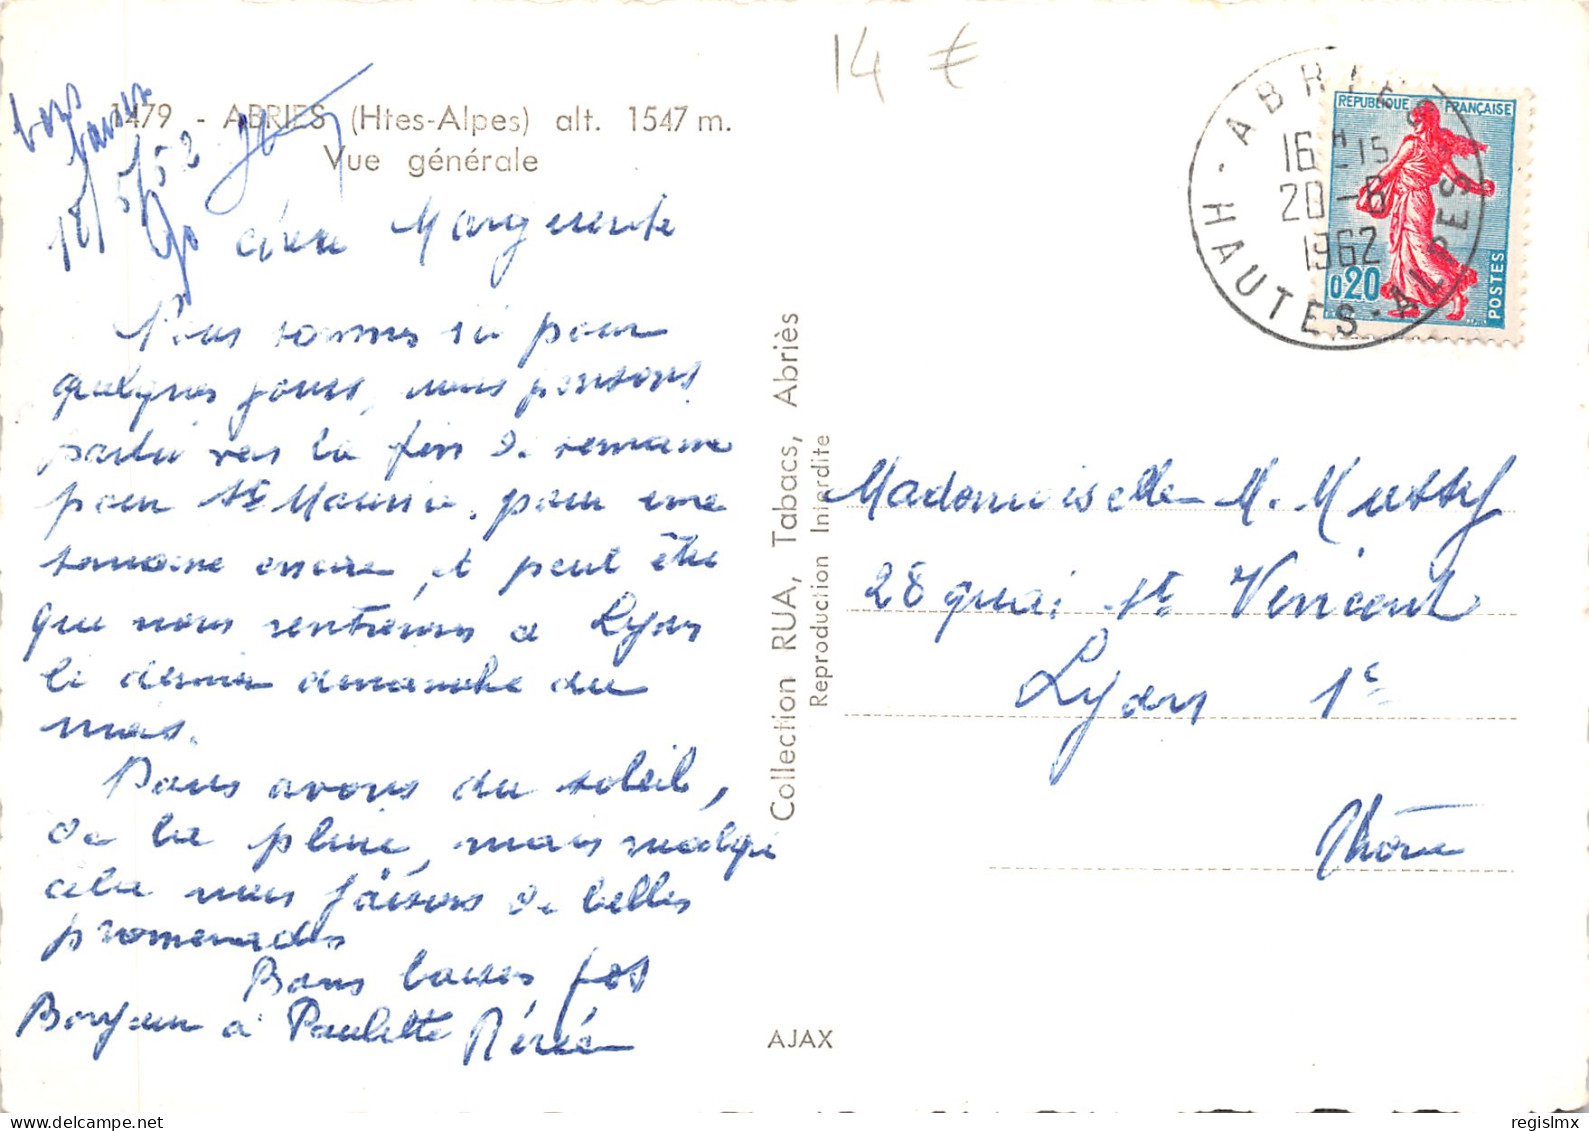 14 €
1479 - ABRIES (Htes-Alpes) alt. 1547 m.
Vue générale
Bons
baisers
Marguerite
Nous sommes ici pour
quelques jours, nous pensons
partir vers la fin de semaine
pour St Maurice, pour une
semaine encore, et peut être
que nous rentrerons a Lyon
le dernier dimanche du
mois.
Nous avons du soleil,
de la pluie, mais malgré
cela nous faisons de belles
promenades
Bons baisers
Bonjour à Paulette
Collection RUA, Tabacs, Abriès
Reproduction Interdite
AJAX
ABRIES
16H15
20-6
1962
HAUTES-ALPES
REPUBLIQUE FRANÇAISE
0,20
POSTES
Mademoiselle M. Mussy
28 quai St Vincent
Lyon 1e
Rhône
regislmx